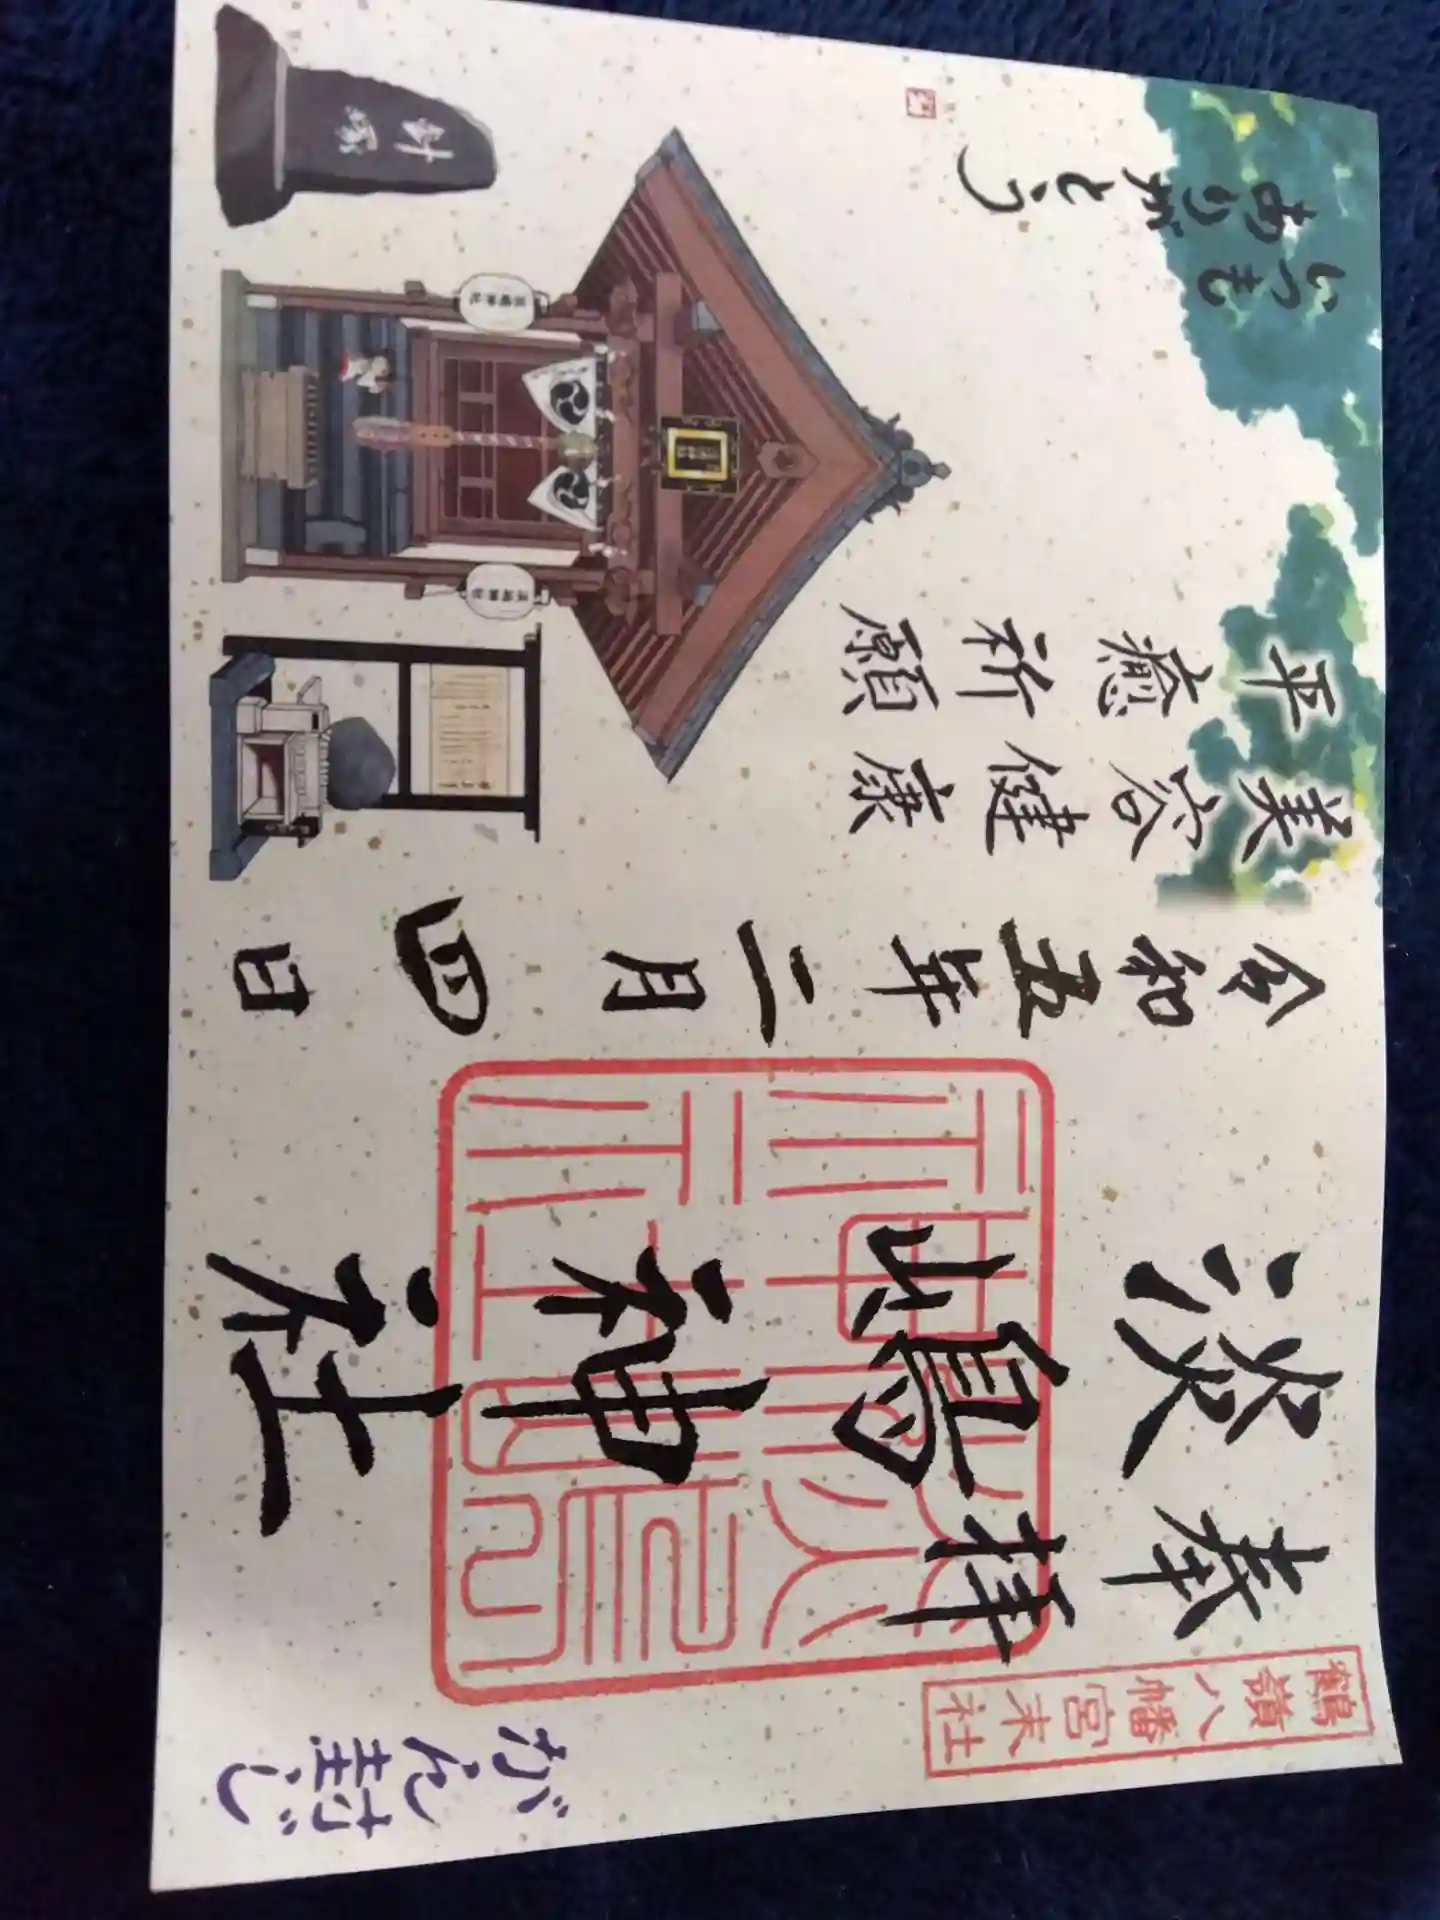 鶴嶺八幡宮末社
奉拝
淡嶋神社
がん封じ
令和五年二月四日
美容健康
平癒祈願
いつも
ありがとう
針塚